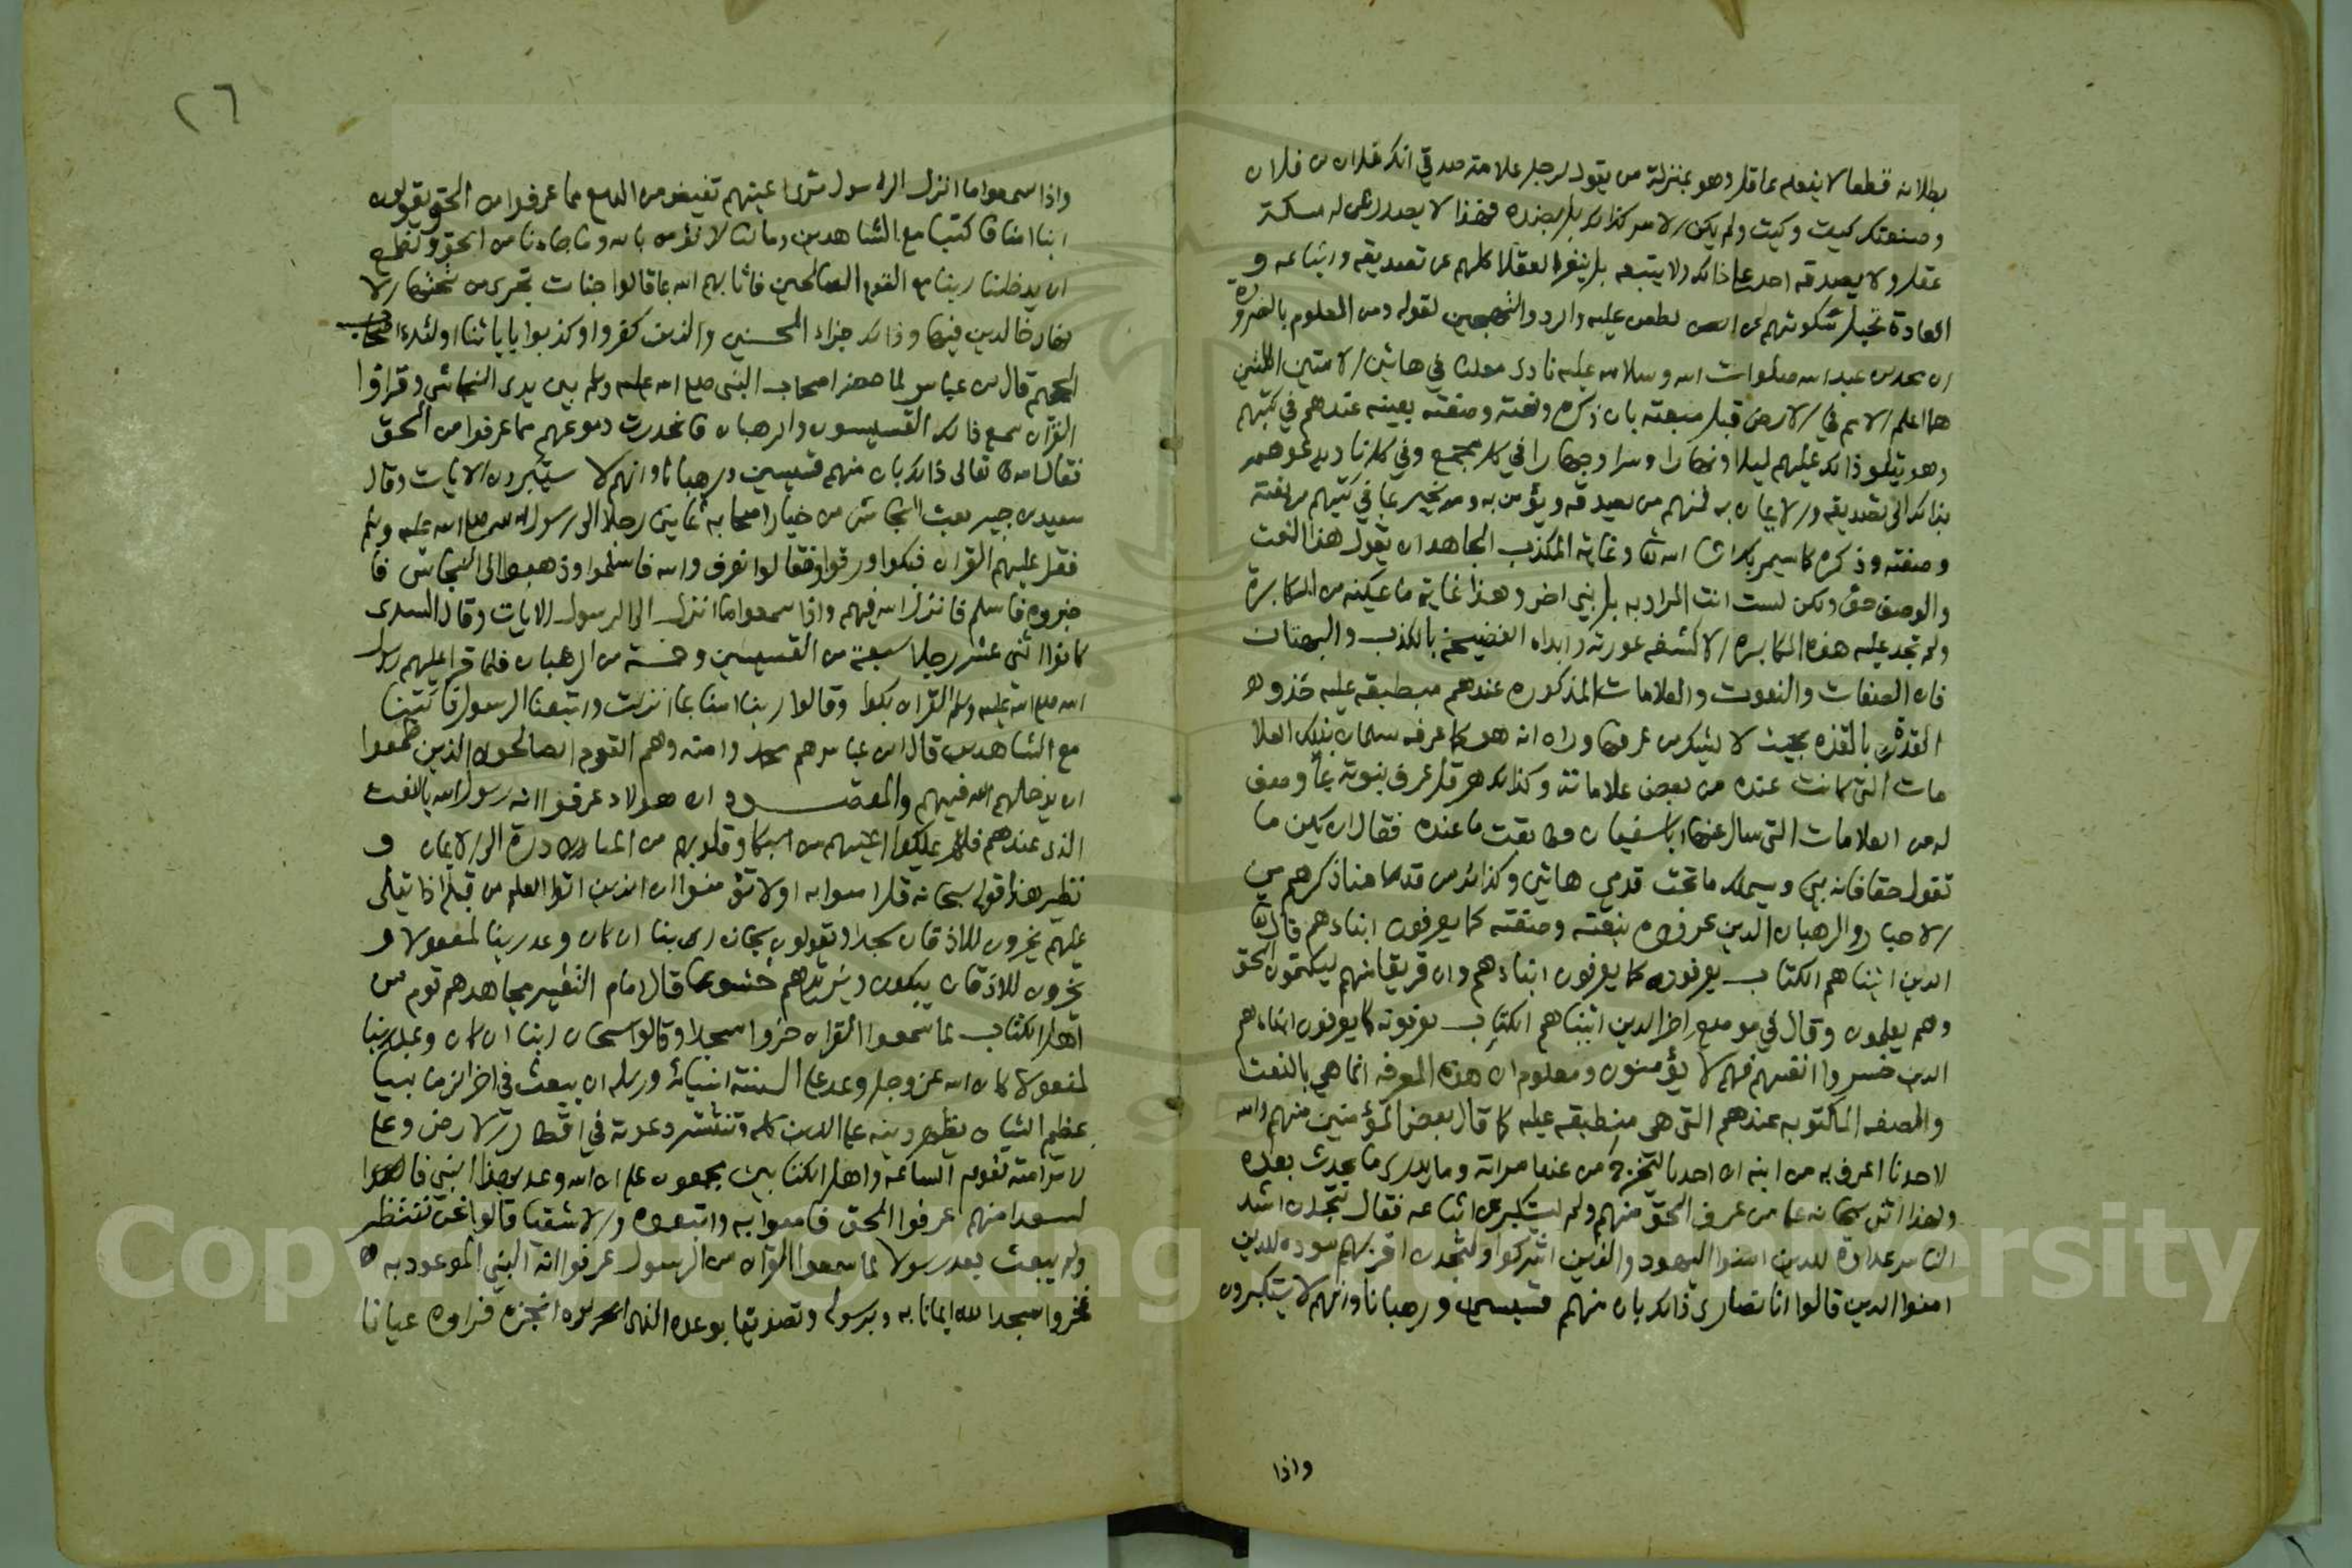 بطلانه قطعا لا يفعله عاقل وهو بمنزلة من يقول لرجل علامة صدقي انك فلان بن فلان
وصنعتك كيت وكيت ولم يكن الامر كذلك بل بضده فهذا لا يصدر ممن له مسكة
عقل ولا يصدقه احد على ذلك ولا يتبعه بل ينفر العقلا كلهم عن تصديقه واتباعه و
العادة تحيل سكوتهم عن الطعن عليه والرد والتهجين لقوله ومن المعلوم بالضرورة
ان محمد بن عبد الله صلوات الله وسلامه عليه نادى معلنا في هاتين الامتين اللتين
هما اعلم الامم في الارض قبل مبعثه بان ذكره ونعته وصفته بعينه عندهم في كتبهم
وهو يتلو ذلك عليهم ليلا ونهارا وسرا وجهارا في كل مجمع وفي كل ناد يدعوهم
بذلك الى تصديقه والايمان به فمنهم من يصدقه ويؤمن به ومن يخبر بما في كتبهم من نعته
وصفته وذكره كما سيمر بك ان شا الله تعا وغاية المكذب الجاهد ان يقول هذا النعت
والوصف حق ولكن لست انت المراد به بل نبي اخر وهذا غاية ما يمكنه من المكابرة
ولم تجد عليه هذه المكابرة الا كشفه عورته وابداه الفضيحة بالكذب والبهتان
فان الصفات والنعوت والعلامات المذكوره عندهم منطبقه عليه حذو
القذة بالقذه بحيث لا يشك من عرفها وراه انه هو كما عرفه سلمان بتلك العلا
مات التي كانت عنده من بعض علاماته وكذلك هرقل عرف نبوته بما وصف
له من العلامات التي سال عنها ابا سفيان وطابقت ما عنده فقال ان يكن ما
تقول حقا فانه نبي وسيملك ما تحت قدمي هاتين وكذلك من قدمنا ذكرهم من
الاحبار والرهبان الذين عرفوه بنعته وصفته كما يعرفون ابناءهم قال تعا
الذين اتيناهم الكتاب يعرفونه كما يعرفون ابناءهم وان فريقا منهم ليكتمون الحق
وهم يعلمون وقال في موضع اخر الذين اتيناهم الكتاب يعرفونه كما يعرفون ابناءهم
الذين خسروا انفسهم فهم لا يؤمنون ومعلوم ان هذه المعرفه انما هي بالنعت
والصفه المكتوبه عندهم التي هي منطبقه عليه كما قال بعض المؤمنين منهم والله
لاحدنا اعرف به من ابنه ان احدنا ليخرج من عند امراته وما يدري ما يحدث بعده
ولهذا اثنى سبحانه على من عرف الحق منهم ولم يستكبر عن اتباعه فقال لتجدن اشد
الناس عداوة للذين امنوا اليهود والذين اشركوا ولتجدن اقربهم مودة للذين
امنوا الذين قالوا انا نصارى ذلك بان منهم قسيسين ورهبانا وانهم لا يستكبرون
واذا
٢٦
واذا سمعوا ما انزل الى الرسول ترى اعينهم تفيض من الدمع مما عرفوا من الحق يقولون
ربنا امنا فاكتبنا مع الشاهدين وما لنا لا نؤمن بالله وما جاءنا من الحق ونطمع
ان يدخلنا ربنا مع القوم الصالحين فاثابهم الله بما قالوا جنات تجري من تحتها الا
نهار خالدين فيها وذلك جزاء المحسنين والذين كفروا وكذبوا باياتنا اولئك اصحاب
الجحيم قال بن عباس لما حضر اصحاب النبي صلى الله عليه وسلم بين يدي النجاشي وقراوا
القران سمع ذلك القسيسون والرهبان فانحدرت دموعهم مما عرفوا من الحق
فقال الله تعالى ذلك بان منهم قسيسين ورهبانا وانهم لا يستكبرون الايات وقال
سعيد بن جبير بعث النجاشي من خيار اصحابه ثمانين رجلا الى رسول الله صلى الله عليه وسلم
فقرا عليهم القران فبكوا ورقوا فقالوا نعرف والله فاسلموا وذهبوا الى النجاشي فا
خبروه فاسلم فانزل الله فيهم واذا سمعوا ما انزل الى الرسول الايات وقال السدى
كانوا اثنى عشر رجلا سبعة من القسيسين وخمسة من الرهبان فلما قرا عليهم رسول
الله صلى الله عليه وسلم القران بكوا وقالوا ربنا امنا بما انزلت واتبعنا الرسول فاكتبنا
مع الشاهدين قال ابن عباس هم محمد وامته وهم القوم الصالحون الذين طمعوا
ان يدخلهم الله فيهم والمقصود ان هولاء عرفوا انه رسول الله بالنعت
الذى عندهم فلم يملكوا اعينهم من البكا وقلوبهم من المبادرة الى الايمان و
نظير هذا قوله سبحانه قل امنوا به او لا تؤمنوا ان الذين اوتوا العلم من قبله اذا يتلى
عليهم يخرون للاذقان سجدا ويقولون سبحان ربنا ان كان وعد ربنا لمفعولا و
يخرون للاذقان يبكون ويزيدهم خشوعا قال امام التفسير مجاهد هم قوم من
اهل الكتاب لما سمعوا القران خروا سجدا وقالوا سبحان ربنا ان كان وعد ربنا
لمفعولا كان الله عز وجل وعد على السنة انبيائه ورسله ان يبعث في اخر الزمان نبيا
عظيم الشان يظهر دينه على الدين كله وتنتشر دعوته في اقطار الارض وعلى
راس امته تقوم الساعه واهل الكتابين مجمعون على ان الله وعدهم بهذا النبي
لسعدا منهم عرفوا الحق فامنوا به واتبعوه والاشقيا قالوا نحن ننتظر
ولم يبعث بعد رسولا لما سمعوا القران من الرسول عرفوا انه النبي الموعود به
فخروا سجدا لله ايمانا به وبرسوله وتصديقا بوعده الذى انجزه فراوه عيانا